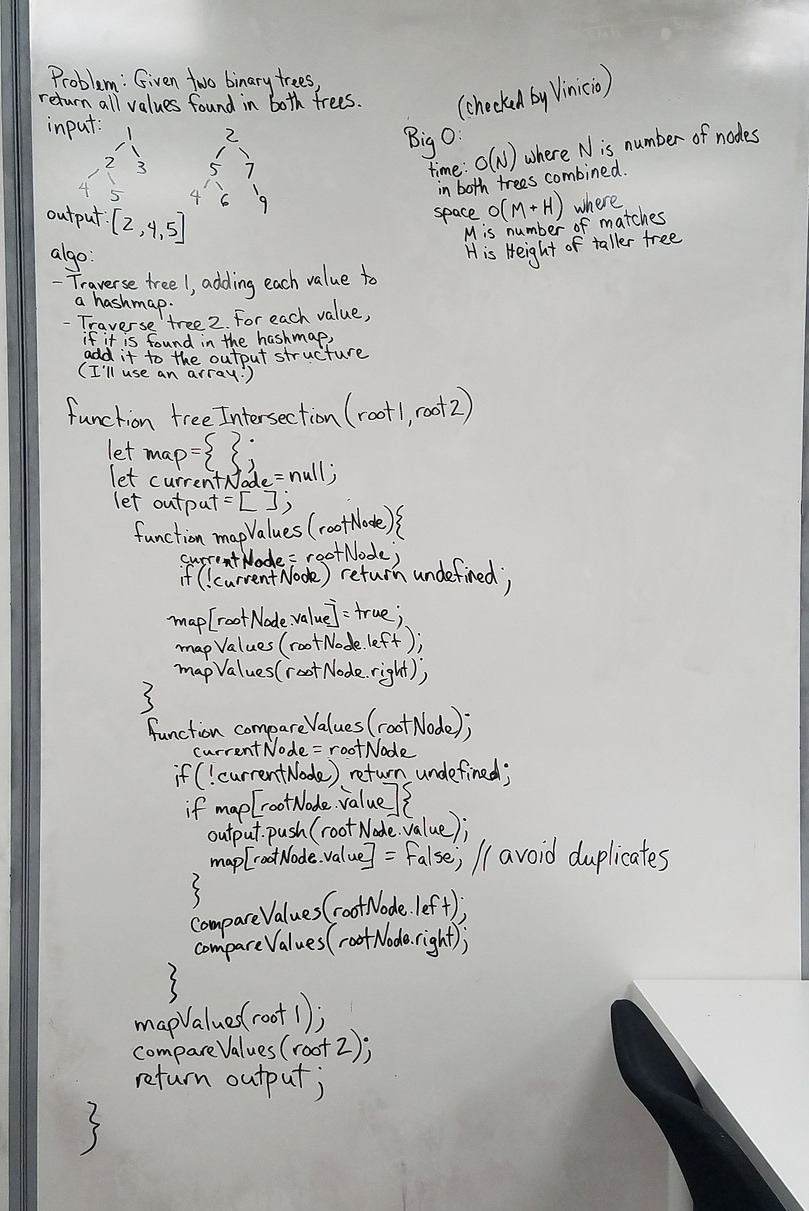 Problem: Given two binary trees,
return all values found in both trees.
input:
1
2 3
4 5
2
5 7
4 6 9
output: [2,4,5]
algo:
- Traverse tree 1, adding each value to
a hashmap.
- Traverse tree 2. For each value,
if it is found in the hashmap,
add it to the output structure
(I'll use an array!)
(checked by Vinicio)
Big O:
time: O(N) where N is number of nodes
in both trees combined.
space O(M+H) where
M is number of matches
H is Height of taller tree
function treeIntersection(root1,root2)
let map={ };
let currentNode=null;
let output=[ ];
function mapValues(rootNode){
currentNode= rootNode;
if(!currentNode) return undefined;
map[rootNode.value]=true;
mapValues(rootNode.left);
mapValues(rootNode.right);
}
function compareValues(rootNode);
currentNode=rootNode
if(!currentNode) return undefined;
if map[rootNode.value]{
output.push(rootNode.value);
map[rootNode.value] = false; // avoid duplicates
}
compareValues(rootNode.left);
compareValues(rootNode.right);
}
mapValues(root1);
compareValues(root2);
return output;
}